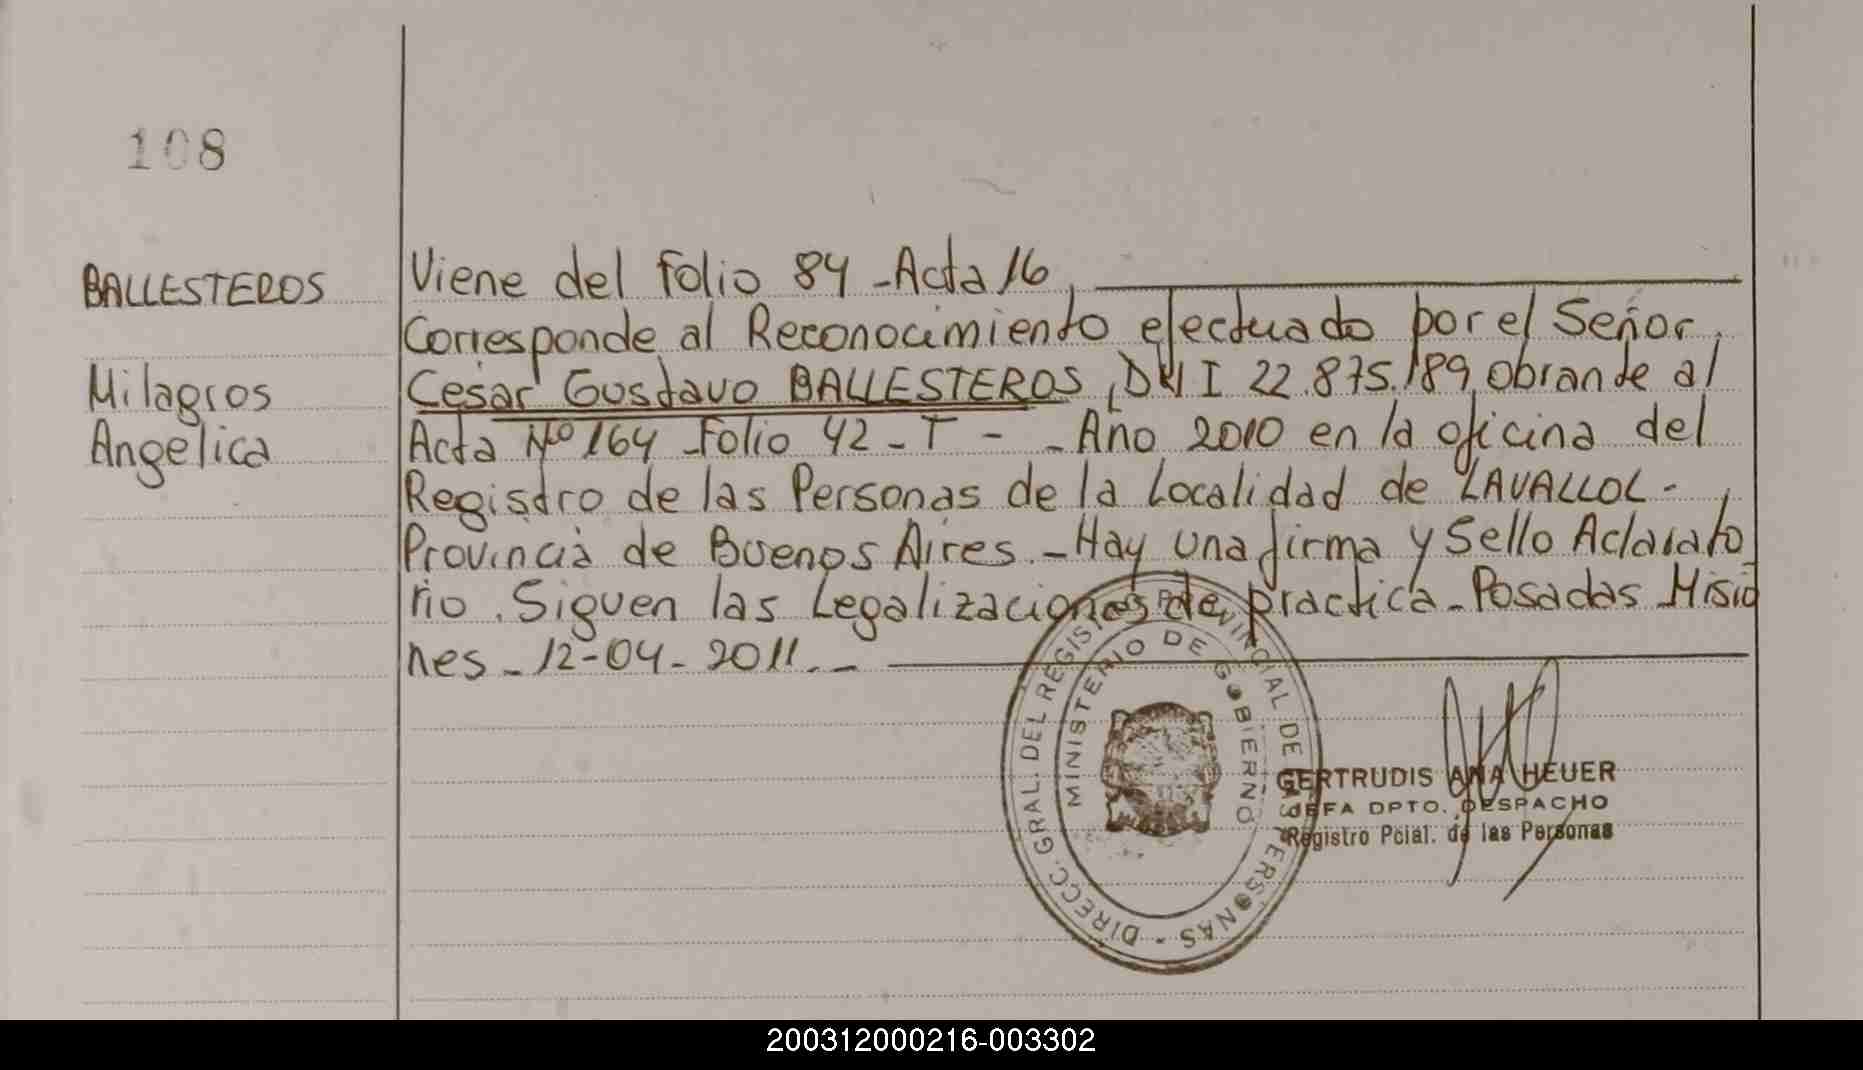 108
BALLESTEROS
Milagros
Angelica
Viene del folio 84 - Acta 16,
Corresponde al Reconocimiento efectuado por el Señor,
Cesar Gustavo BALLESTEROS, DNI 22.875.189, obrande al
Acta Nº 164 - Folio 42 - T - - Año 2010 en la oficina del
Registro de las Personas de la Localidad de LAVALLOL -
Provincia de Buenos Aires. - Hay una firma y Sello Aclarato
rio. Siguen las Legalizaciones de practica - Posadas Misio
nes - 12-04-2011. -
DIRECC. GRAL. DEL REGISTRO PROVINCIAL DE LAS PERSONAS -
MINISTERIO DE GOBIERNO
GERTRUDIS ANA HEUER
JEFA DPTO. DESPACHO
Registro Pcial. de las Personas
200312000216-003302